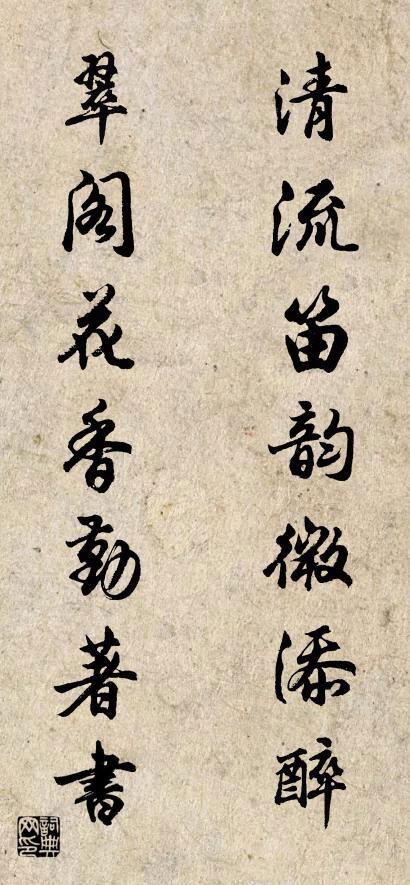 清流笛韵微添醉
翠阁花香勤著書
詞典网印